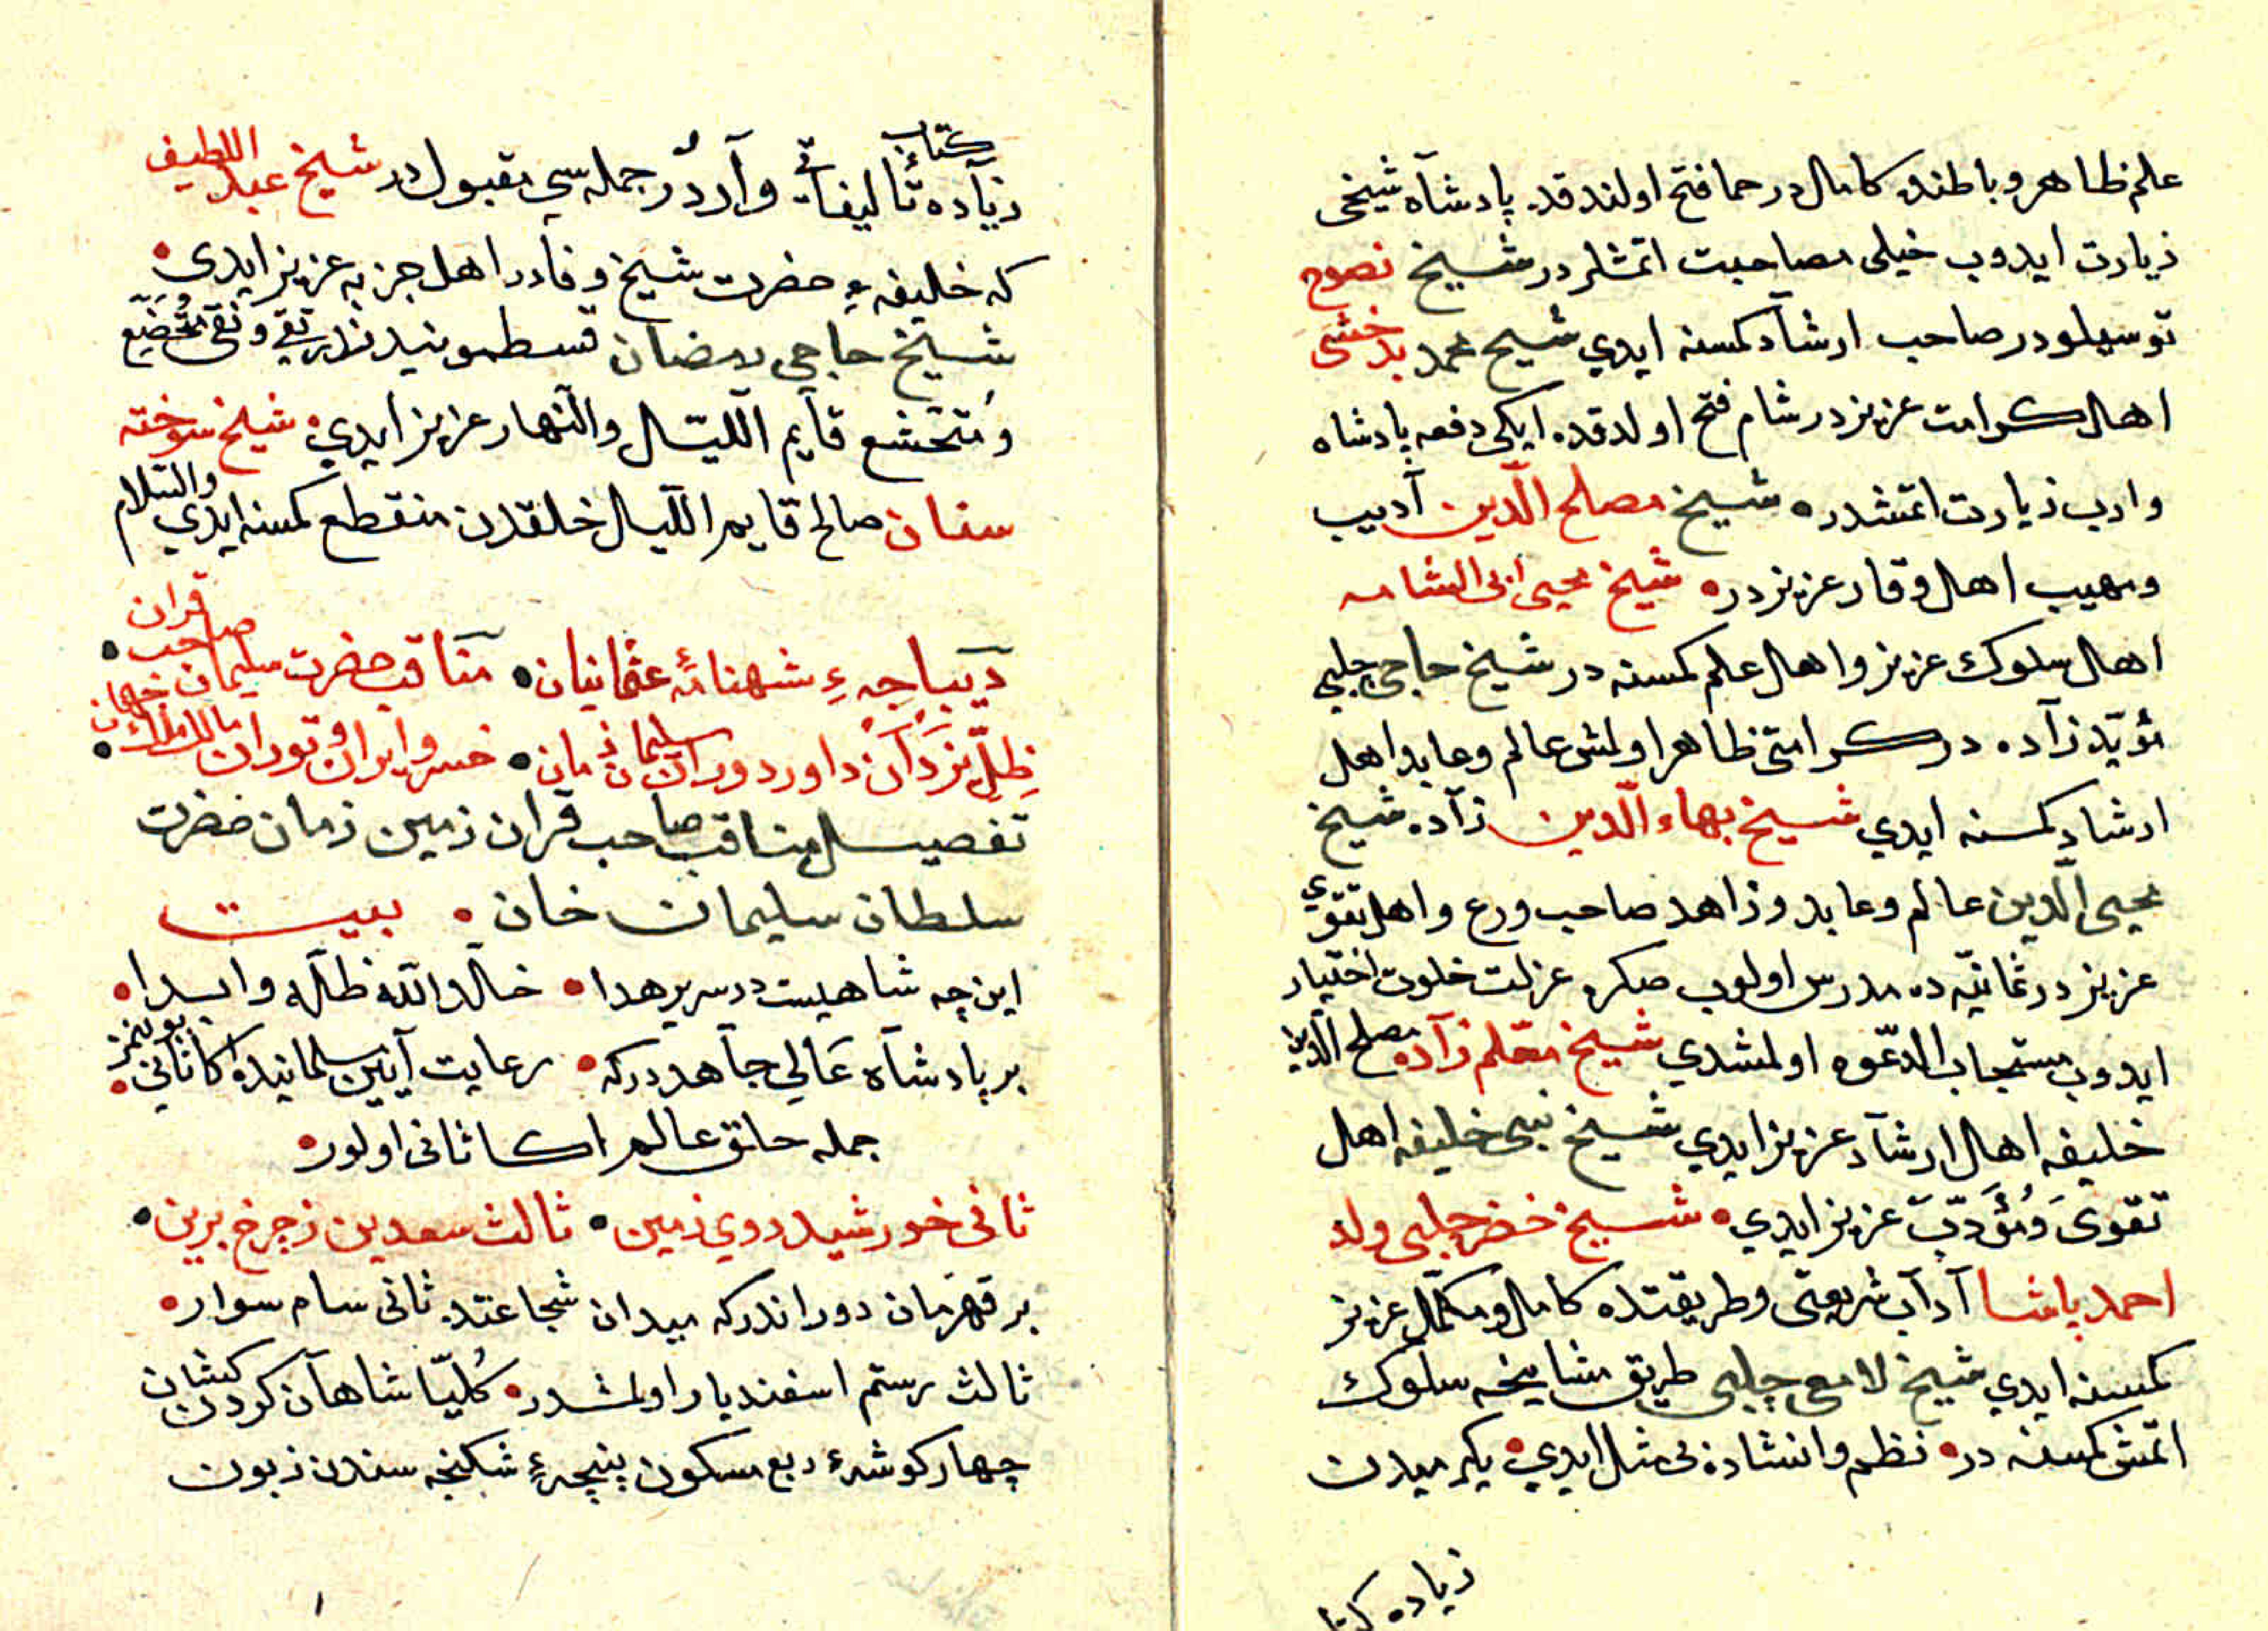 علم ظاهر و باطنده كامل در حما فتح اولندقده پادشآه شيخى
زيارت ايدوب خيلى مصاحبت اتمشلر در شيخ نصوح
توسيلودر صاحب ارشآد كمسنه ايدي شيخ محمد بدخشى
اهل كرامت عزيز در شام فتح اولدقده ايكى دفعه پادشاه
وارب زيارت اتمشدر شيخ مصلح الدّين آديب
ومهيب اهل وقار عزيز در شيخ محيى ابى الشامه
اهل سلوك عزيز و اهل علم كمسنه در شيخ حاجى چلبي
مؤيّد زآده در كرامتى ظاهر اولمش عالم وعابد اهل
ارشاد كمسنه ايدي شيخ بهاء الدّين زآده شيخ
محيى الدّين عالم وعابد و زاهد صاحب ورع و اهل تقوي
عزيز در ثمانيّه ده مدرس اولوب صكره عزلت خلوت اختيار
ايدوب مستجاب الدّعوه اولمشدي شيخ معّلم زآده مصلح الدين
خليفه اهل ارشآد عزيز ايدي شيخ نبى خليفه اهل
تقوىَ وَمُؤَدّبَ عزيز ايدي شيخ خضر چلبى ولد
احمد پاشا آدآب شريعتى وطريقتده كامل ومكمّل عزيز
كمسنه ايدي شيخ لامعى چلبى طريق مشايخه سلوك
اتمش كمسنه در نظم وانشاده بى مثل ايدي يكرميدن
زياده كتا
زيآده كتاب تأليفاتى وآردّر جمله سي مقبول در شيخ عبد اللطيف
كه خليفه ءِ حضرت شيخ وفادر اهل جزبه عزيز ايدى
شيخ حاجي رمضان قسطمونيدندر تقي و نقى متُخضّيَع
وُمتخشع قآيم اللّيّال والنّهار عزيز ايدي شيخ سوخته
سنان صالح قايم الليال خلقدن منقطع كمسنه ايدي والسّلام
ديبباجه ءِ شهنامۀ عثمانيان مناقب حضرت سليمان صاحب قران
ظِلّ يَزدَآن داور دوران سليمان زمان خسرو ايران و توران مالك الملك جهان
تفصيل مناقب صاحب قران زمين زمان حضرت
سلطان سليمان خان بيت
اين چه شاهيست در سرير هدا خلّد الله ظلّه وابدا
بر پادشآه عَالي جآهدر كه رعايت آيين مسلمانيده اكا ثانى بولنمز
جمله خلق عالم اكا ثانى اولور
ثانى خورشيد روي زمين ثالث سعدين ز چرخ برين
بر قهرمان دوراندر كه ميدان شجاعتده ثانى سام سوار
ثالث رستم اسفنديار اولمشدر كُليّا شاهآن كردن كشان
چهار كوشۀ ربع مسكون پنچهءِ شكنجه سندن زبون